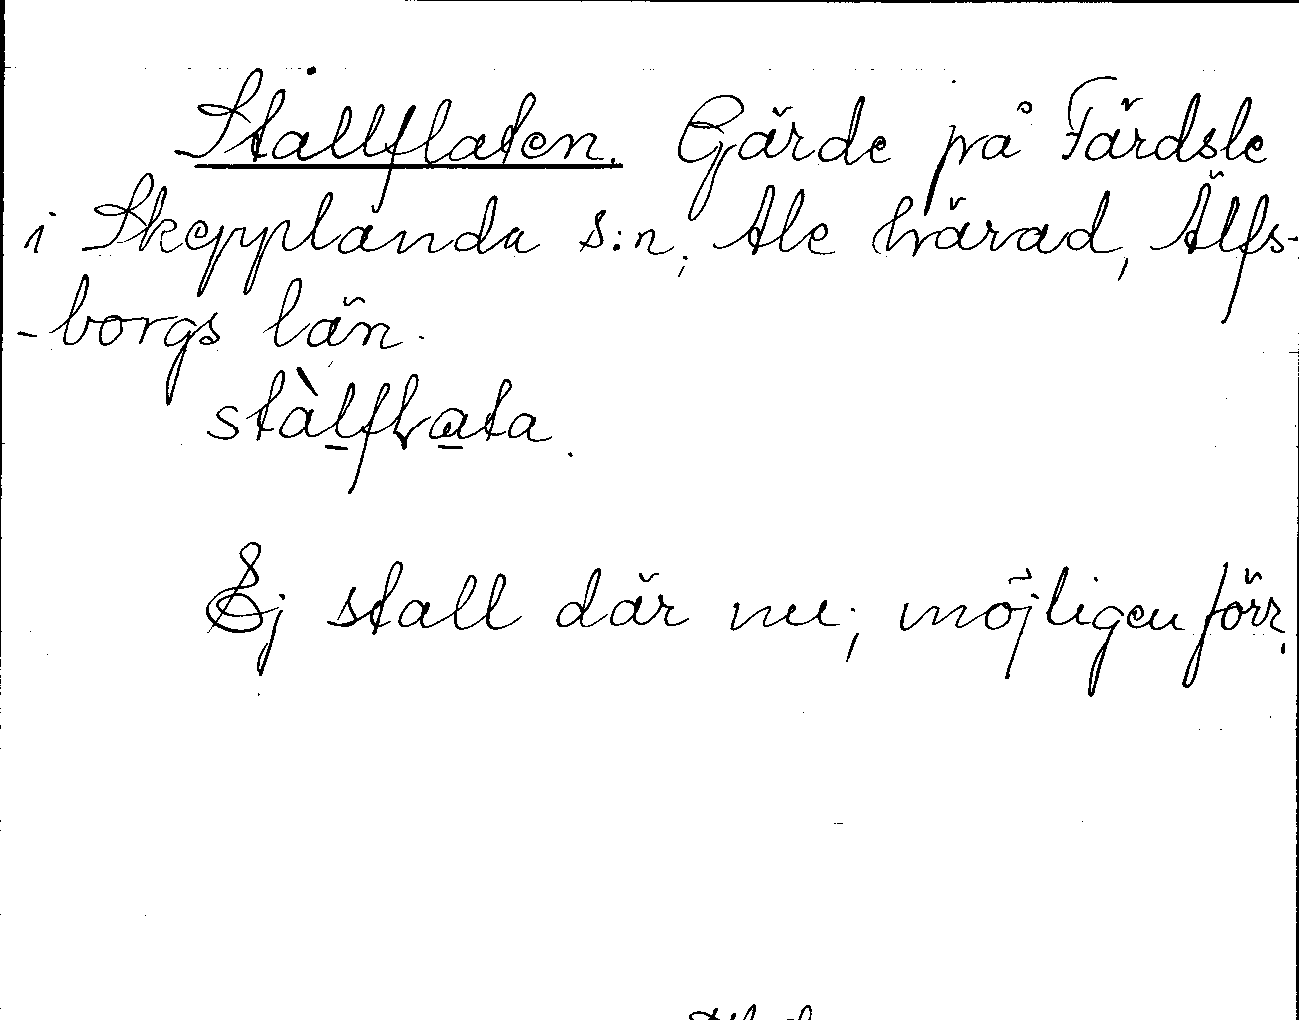 Stallflaten. Gärde på Färdsle
i Skepplanda s:n, Ale härad, Älfs-
-borgs län.
stàlflata.
Ej stall där nu; möjligen förr.